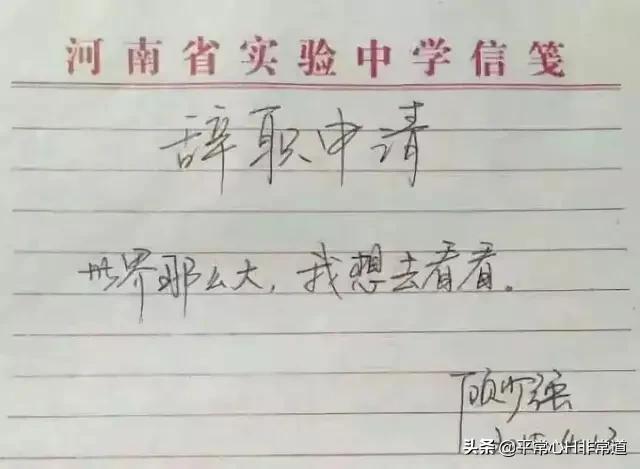 河南省实验中学信笺
辞职申请
世界那么大，我想去看看。
顾少强
头条 @平常心H非常道